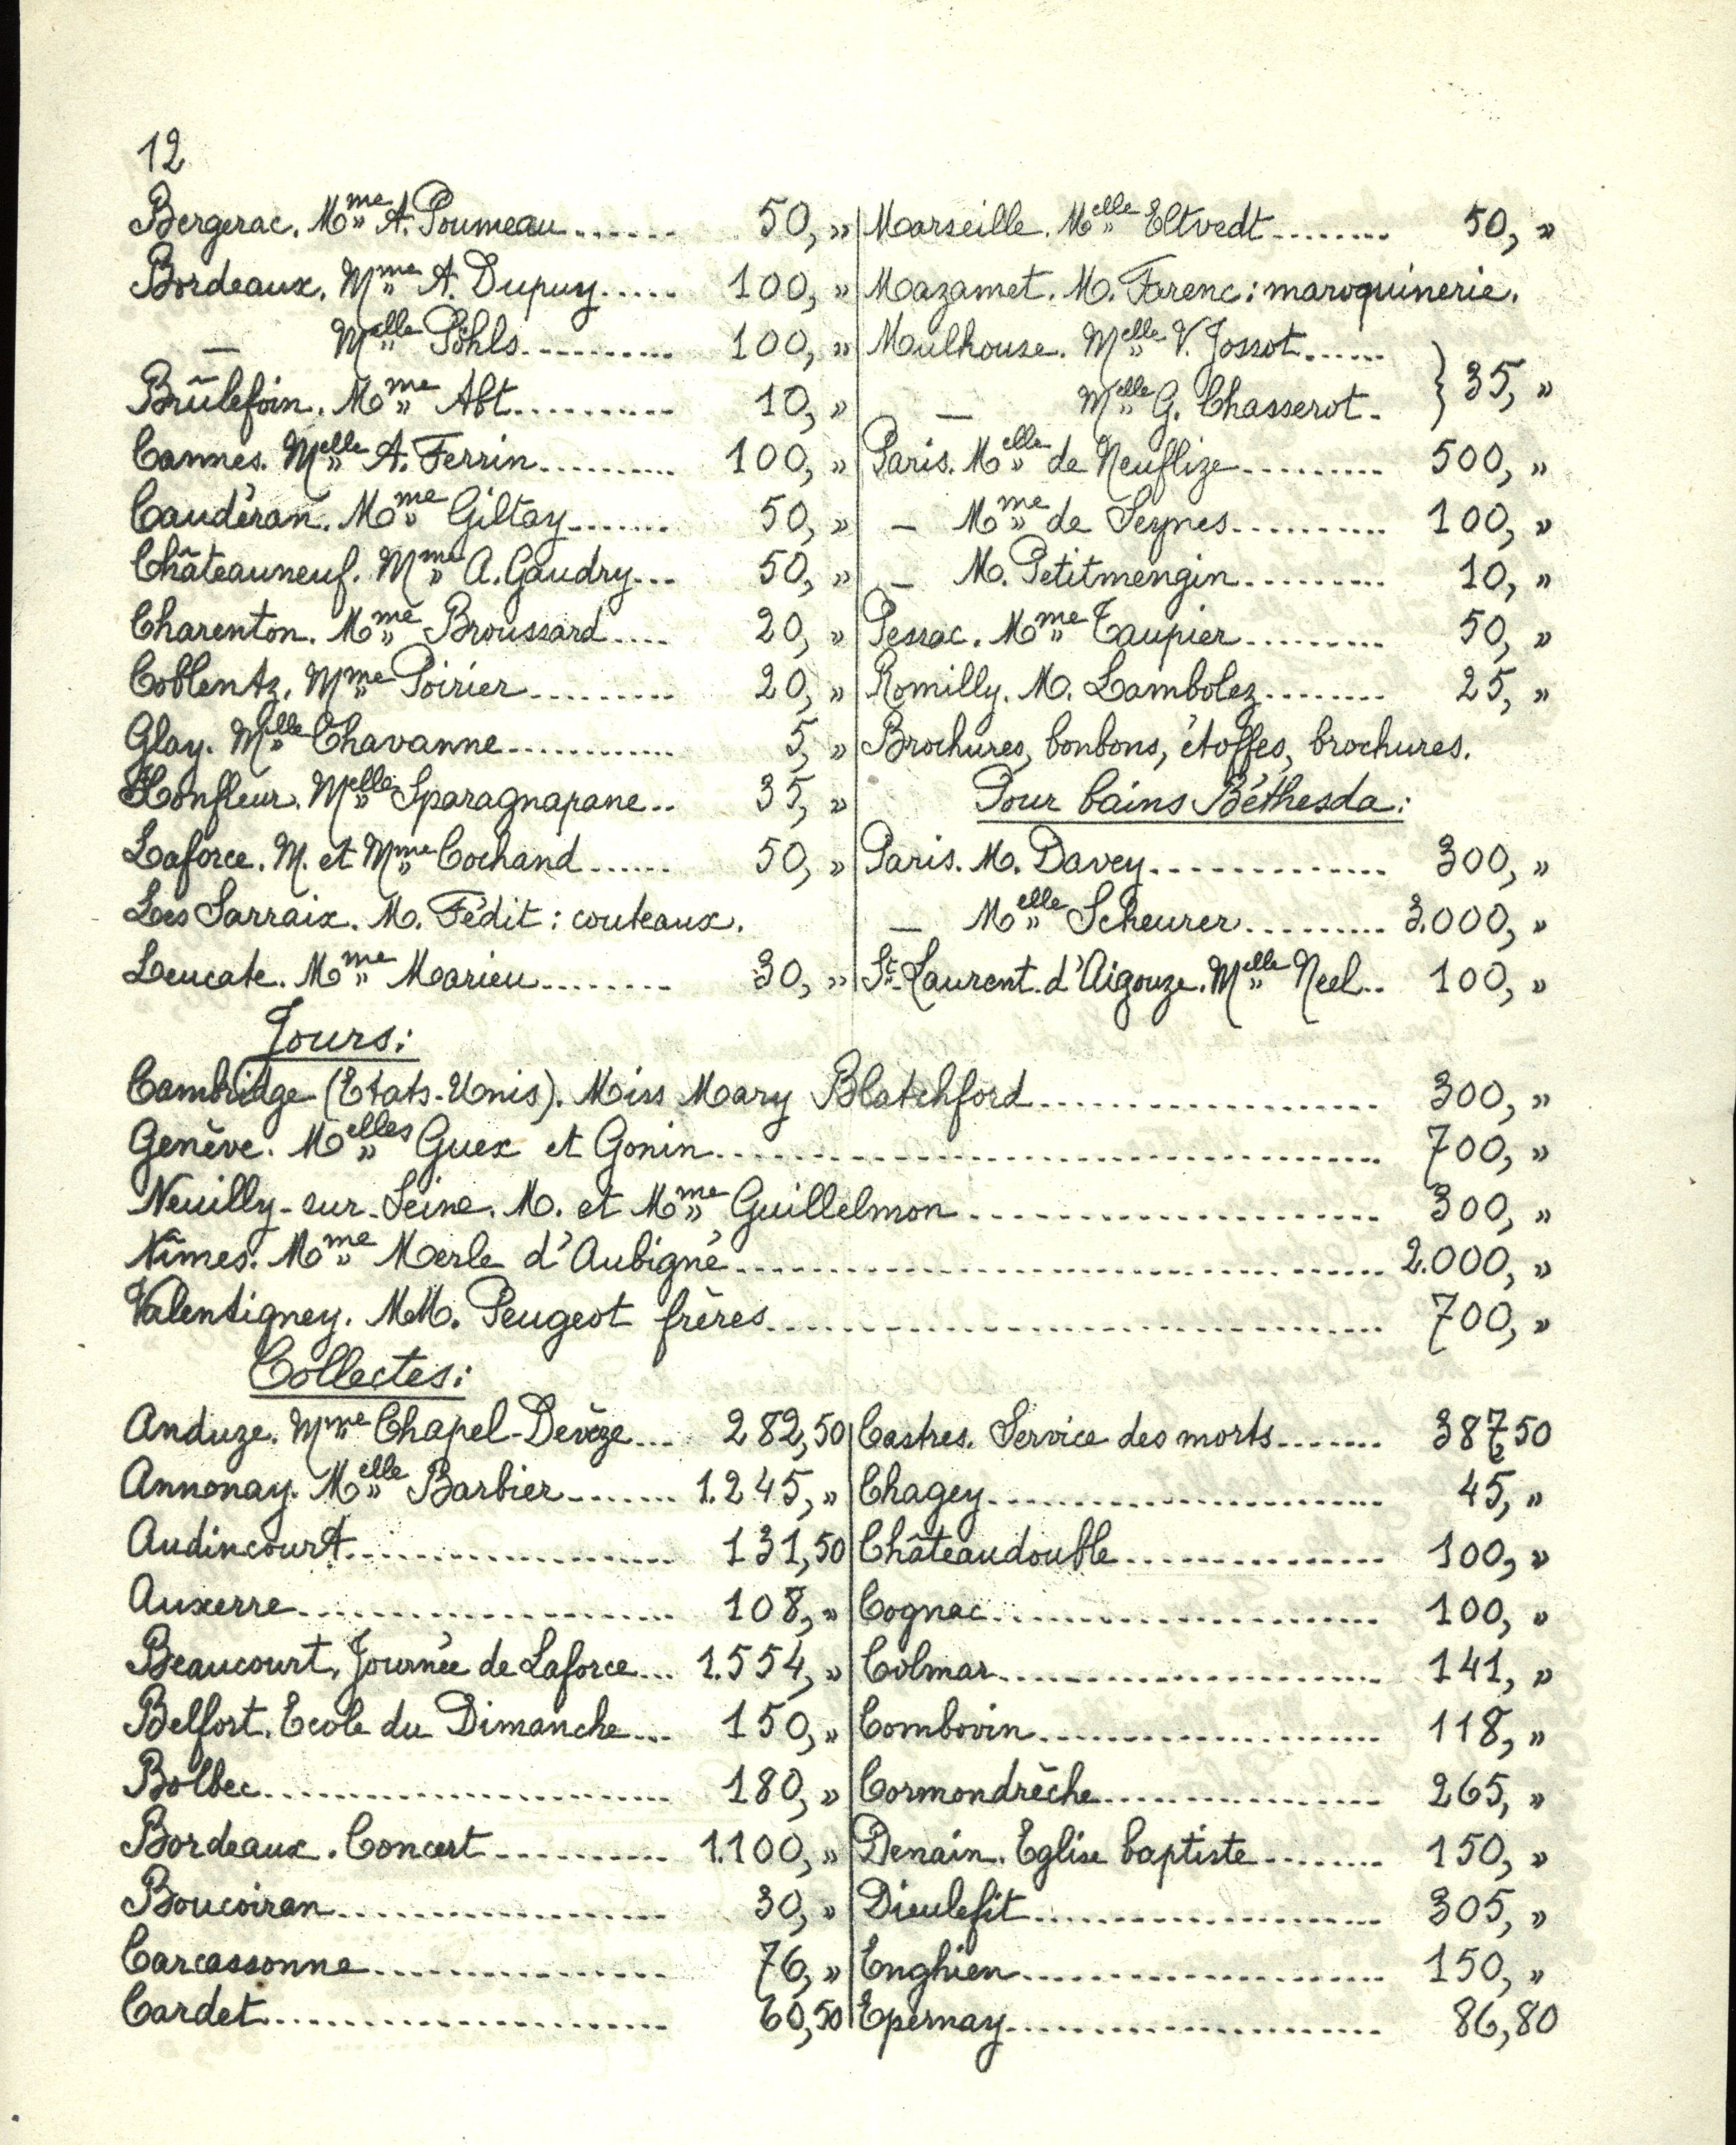 12
Bergerac. Mme A. Poumeau....... 50, "
Bordeaux. Mme A. Dupuy..... 100, "
— Melle Pöhls.......... 100, "
Brûlefoin. Mme Abt.......... 10, "
Cannes. Melle A. Ferrin.......... 100, "
Caudéran. Mme Giltay....... 50, "
Châteauneuf. Mme A. Gaudry... 50, "
Charenton. Mme Broussard..... 20, "
Coblentz. Mme Poirier.......... 20, "
Glay. Melle Chavanne............ 5, "
Honfleur. Melle Sparagnapane.. 35, "
Laforce. M. et Mme Cochand...... 50, "
Les Sarraix. M. Fédit: couteaux.
Leucate. Mme Marieu........ 30, "
Marseille. Melle Eltvedt......... 50, "
Mazamet. M. Farenc: maroquinerie.
Mulhouse. Melle V. Jossot......
— Melle G. Chasserot. } 35, "
Paris. Melle de Neuflize.......... 500, "
— Mme de Seynes........... 100, "
— M. Petitmengin.......... 10, "
Pessac. Mme Taupier.......... 50, "
Romilly. M. Lambolez........ 25, "
Brochures, bonbons, étoffes, brochures.
Pour bains Béthesda:
Paris. M. Davey............. 300, "
— Melle Scheurer.......... 3.000, "
St-Laurent-d'Aigouze. Melle Neel.. 100, "
Jours:
Cambridge (Etats-Unis). Miss Mary Blatchford.................... 300, "
Genève. Melles Guex et Gonin........................................ 700, "
Neuilly-sur-Seine. M. et Mme Guillelmon........................ 300, "
Nîmes. Mme Merle d'Aubigné...................................... 2.000, "
Valentigney. MM. Peugeot frères.................................. 700, "
Collectes:
Anduze. Mme Chapel-Devèze... 282,50
Annonay. Melle Barbier........ 1.245, "
Audincourt....................... 131,50
Auxerre.......................... 108, "
Beaucourt. Journée de Laforce... 1.554, "
Belfort. Ecole du Dimanche... 150, "
Bolbec........................... 180, "
Bordeaux. Concert............ 1.100, "
Boucoiran....................... 30, "
Carcassonne.................... 76, "
Cardet........................... 60,50
Castres. Service des morts........ 387,50
Chagey........................... 45, "
Châteaudouble.................. 100, "
Cognac........................... 100, "
Colmar........................... 141, "
Combovin........................ 118, "
Cormondrèche.................. 265, "
Denain. Eglise baptiste......... 150, "
Dieulefit......................... 305, "
Enghien.......................... 150, "
Epernay.......................... 86,80